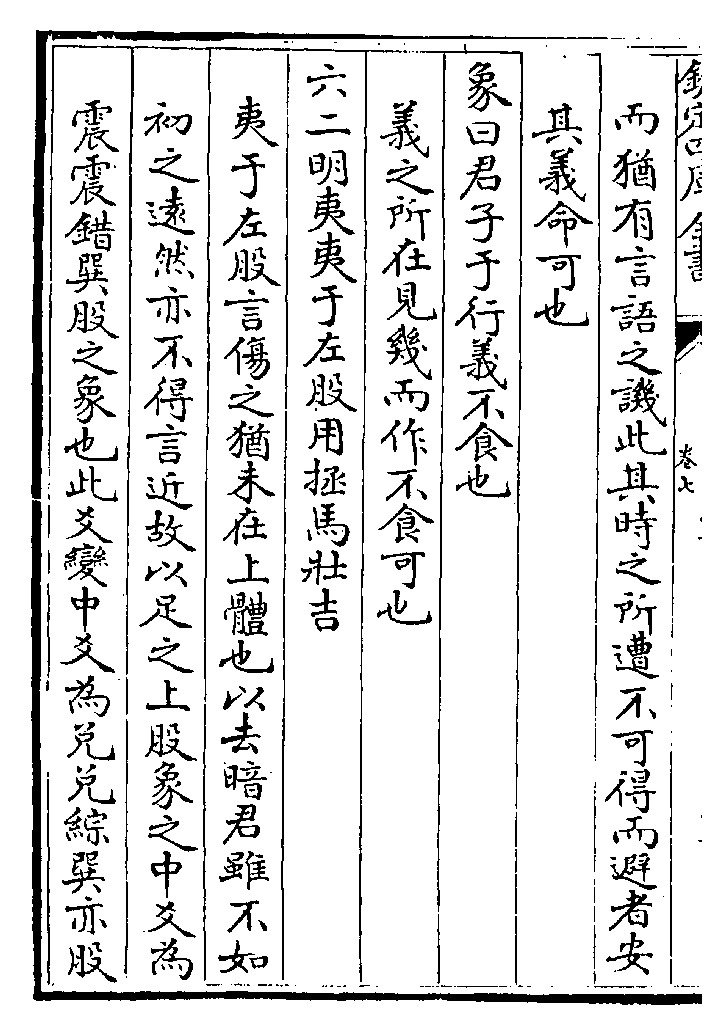 欽定四庫全書
卷七
而猶有言語之譏此其時之所遭不可得而避者安
其義命可也
象曰君子于行義不食也
義之所在見幾而作不食可也
六二明夷夷于左股用拯馬壯吉
夷于左股言傷之猶未在上體也以去暗君雖不如
初之遠然亦不得言近故以足之上股象之中爻為
震震錯巽股之象也此爻變中爻為兌兌綜巽亦股